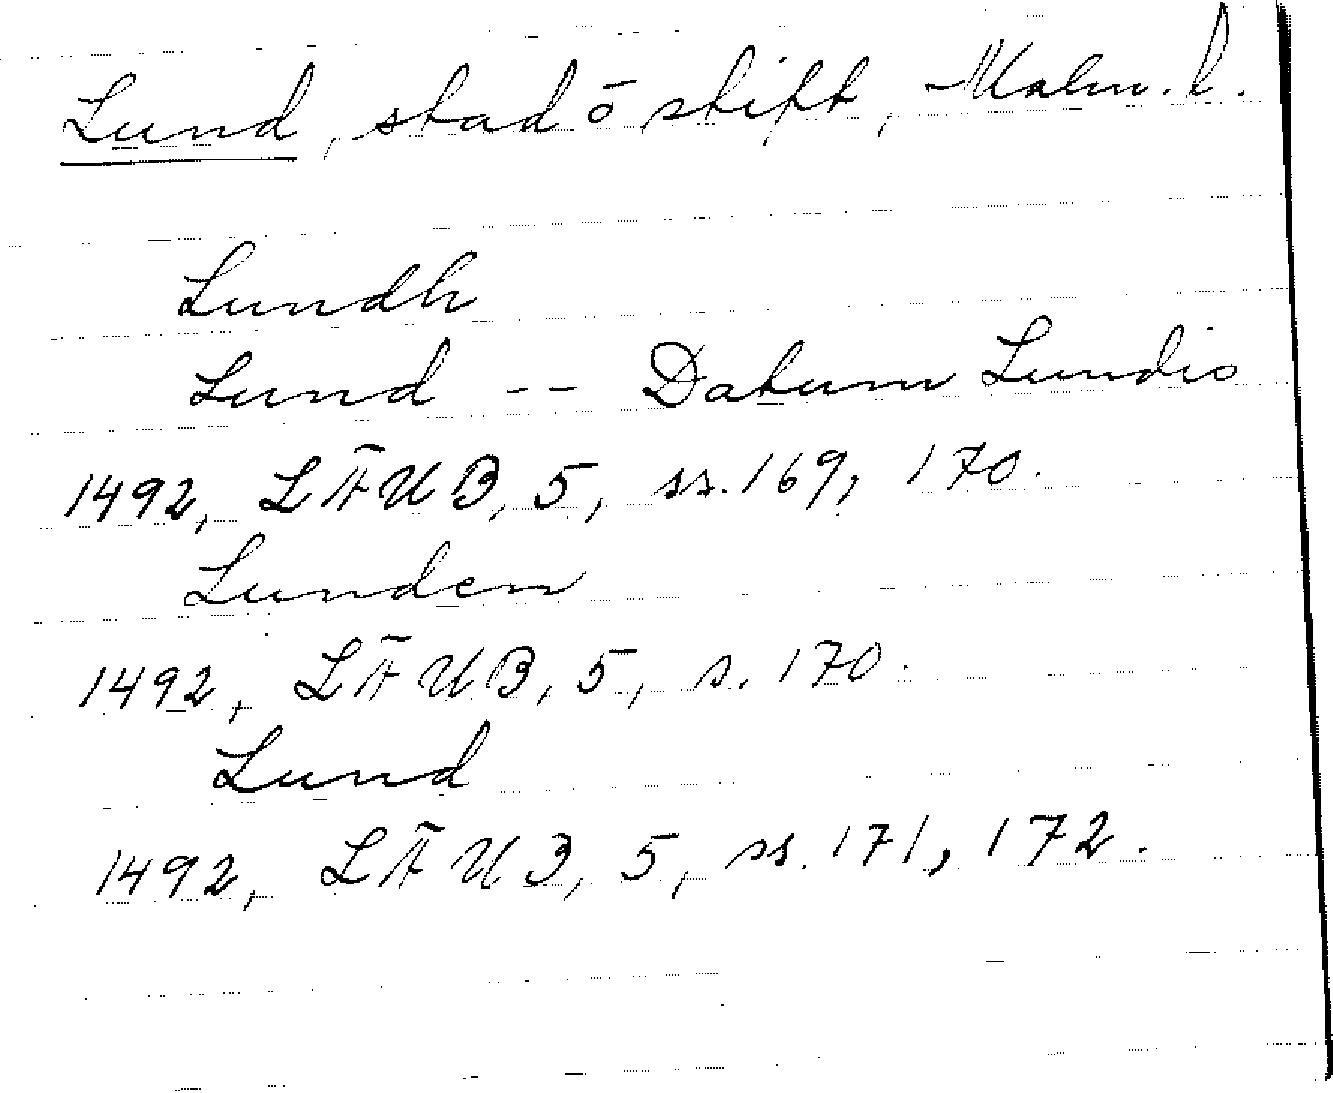 Lund, stad ō stift, Malm. l.
Lundh
Lund -- Datum Lundis
1492, LÄUB, 5, ss. 169, 170.
Lunden
1492, LÄUB, 5, s. 170.
Lund
1492, LÄUB, 5, ss. 171, 172.